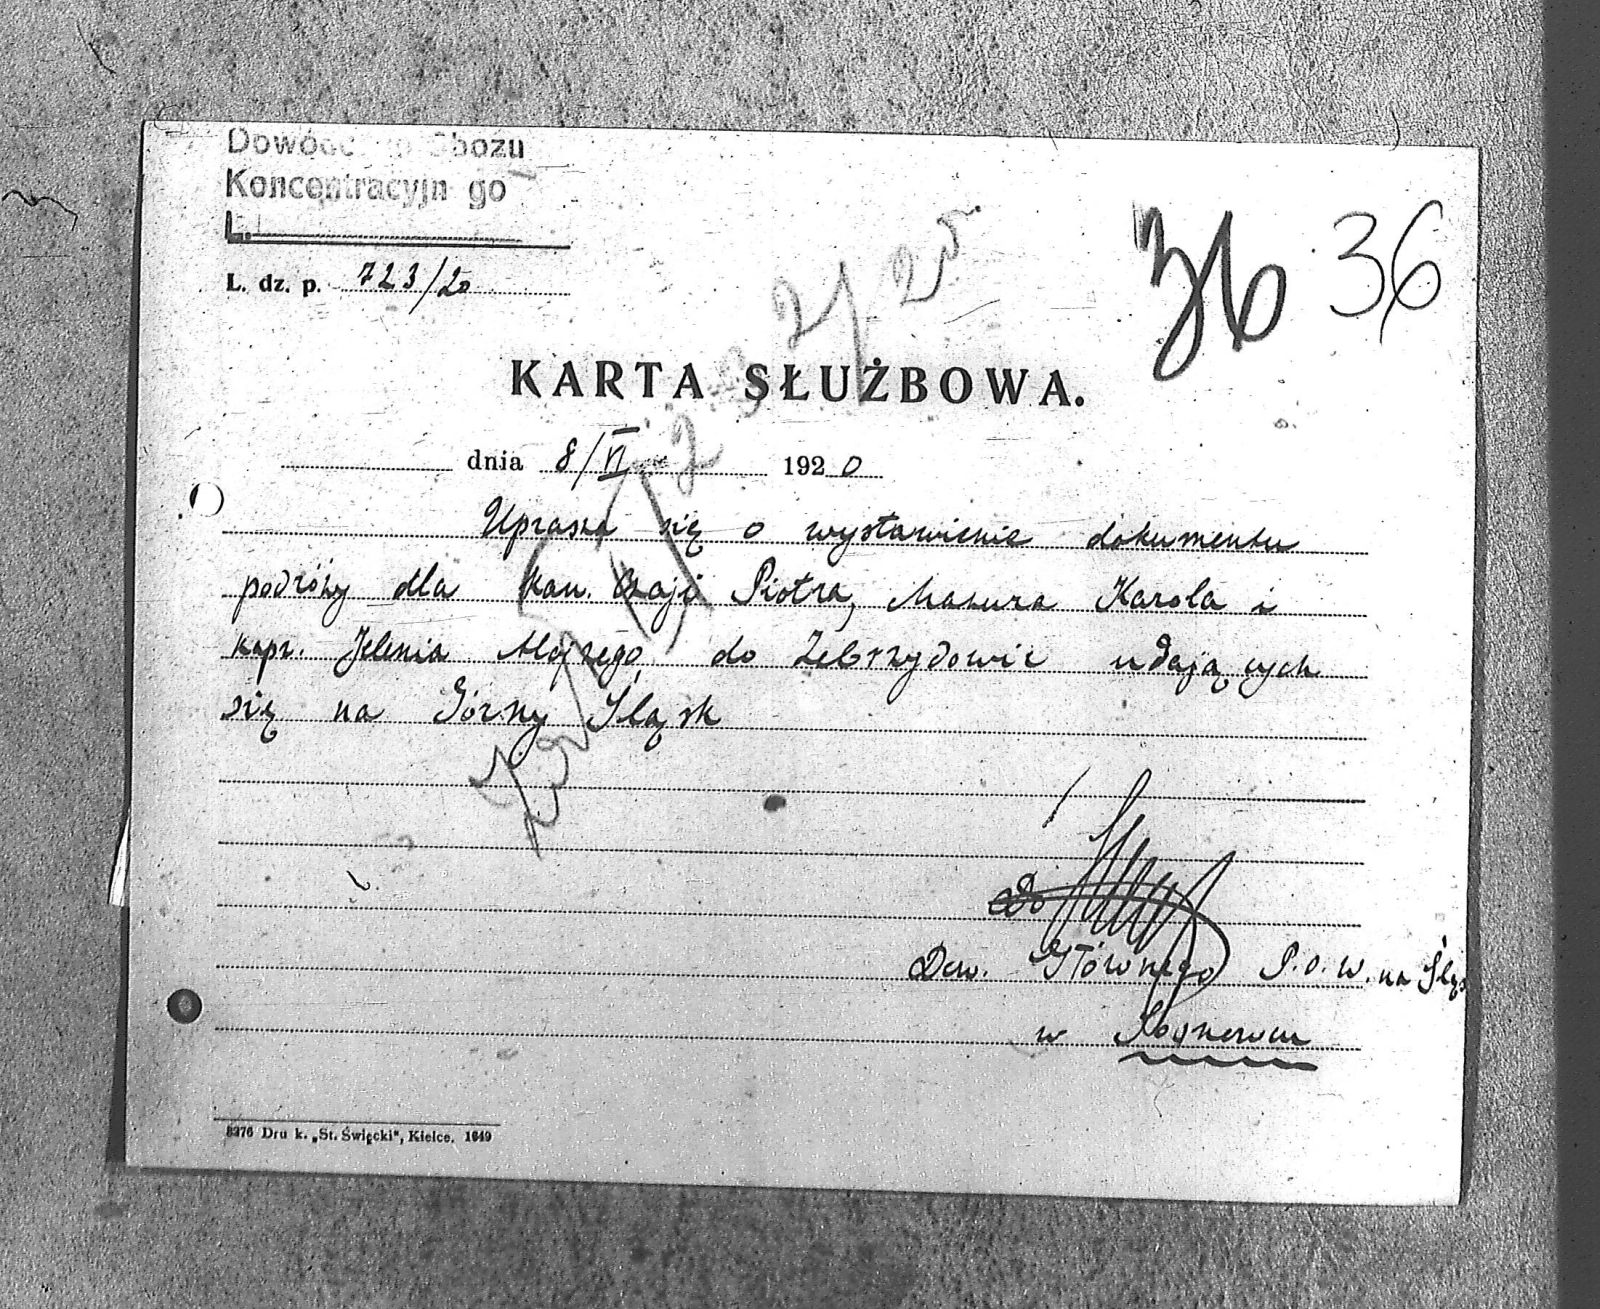 Obozu
Koncentracyjn go
L.
L. dz. p. 723/20
36 36
KARTA SŁUŻBOWA.
dnia 8/VI 1920
Uprasza się o wystawienie dokumentu
podróży dla kan. Piotra, Mazura Karola i
kapr. Jelenia Alojzego do Zebrzydowic udających
się na Górny Śląsk
Do
Dow. Głównego P.O.W. na Śląs
w Sosnowcu
8376 Dru k. „St. Święcki", Kielce. 1649